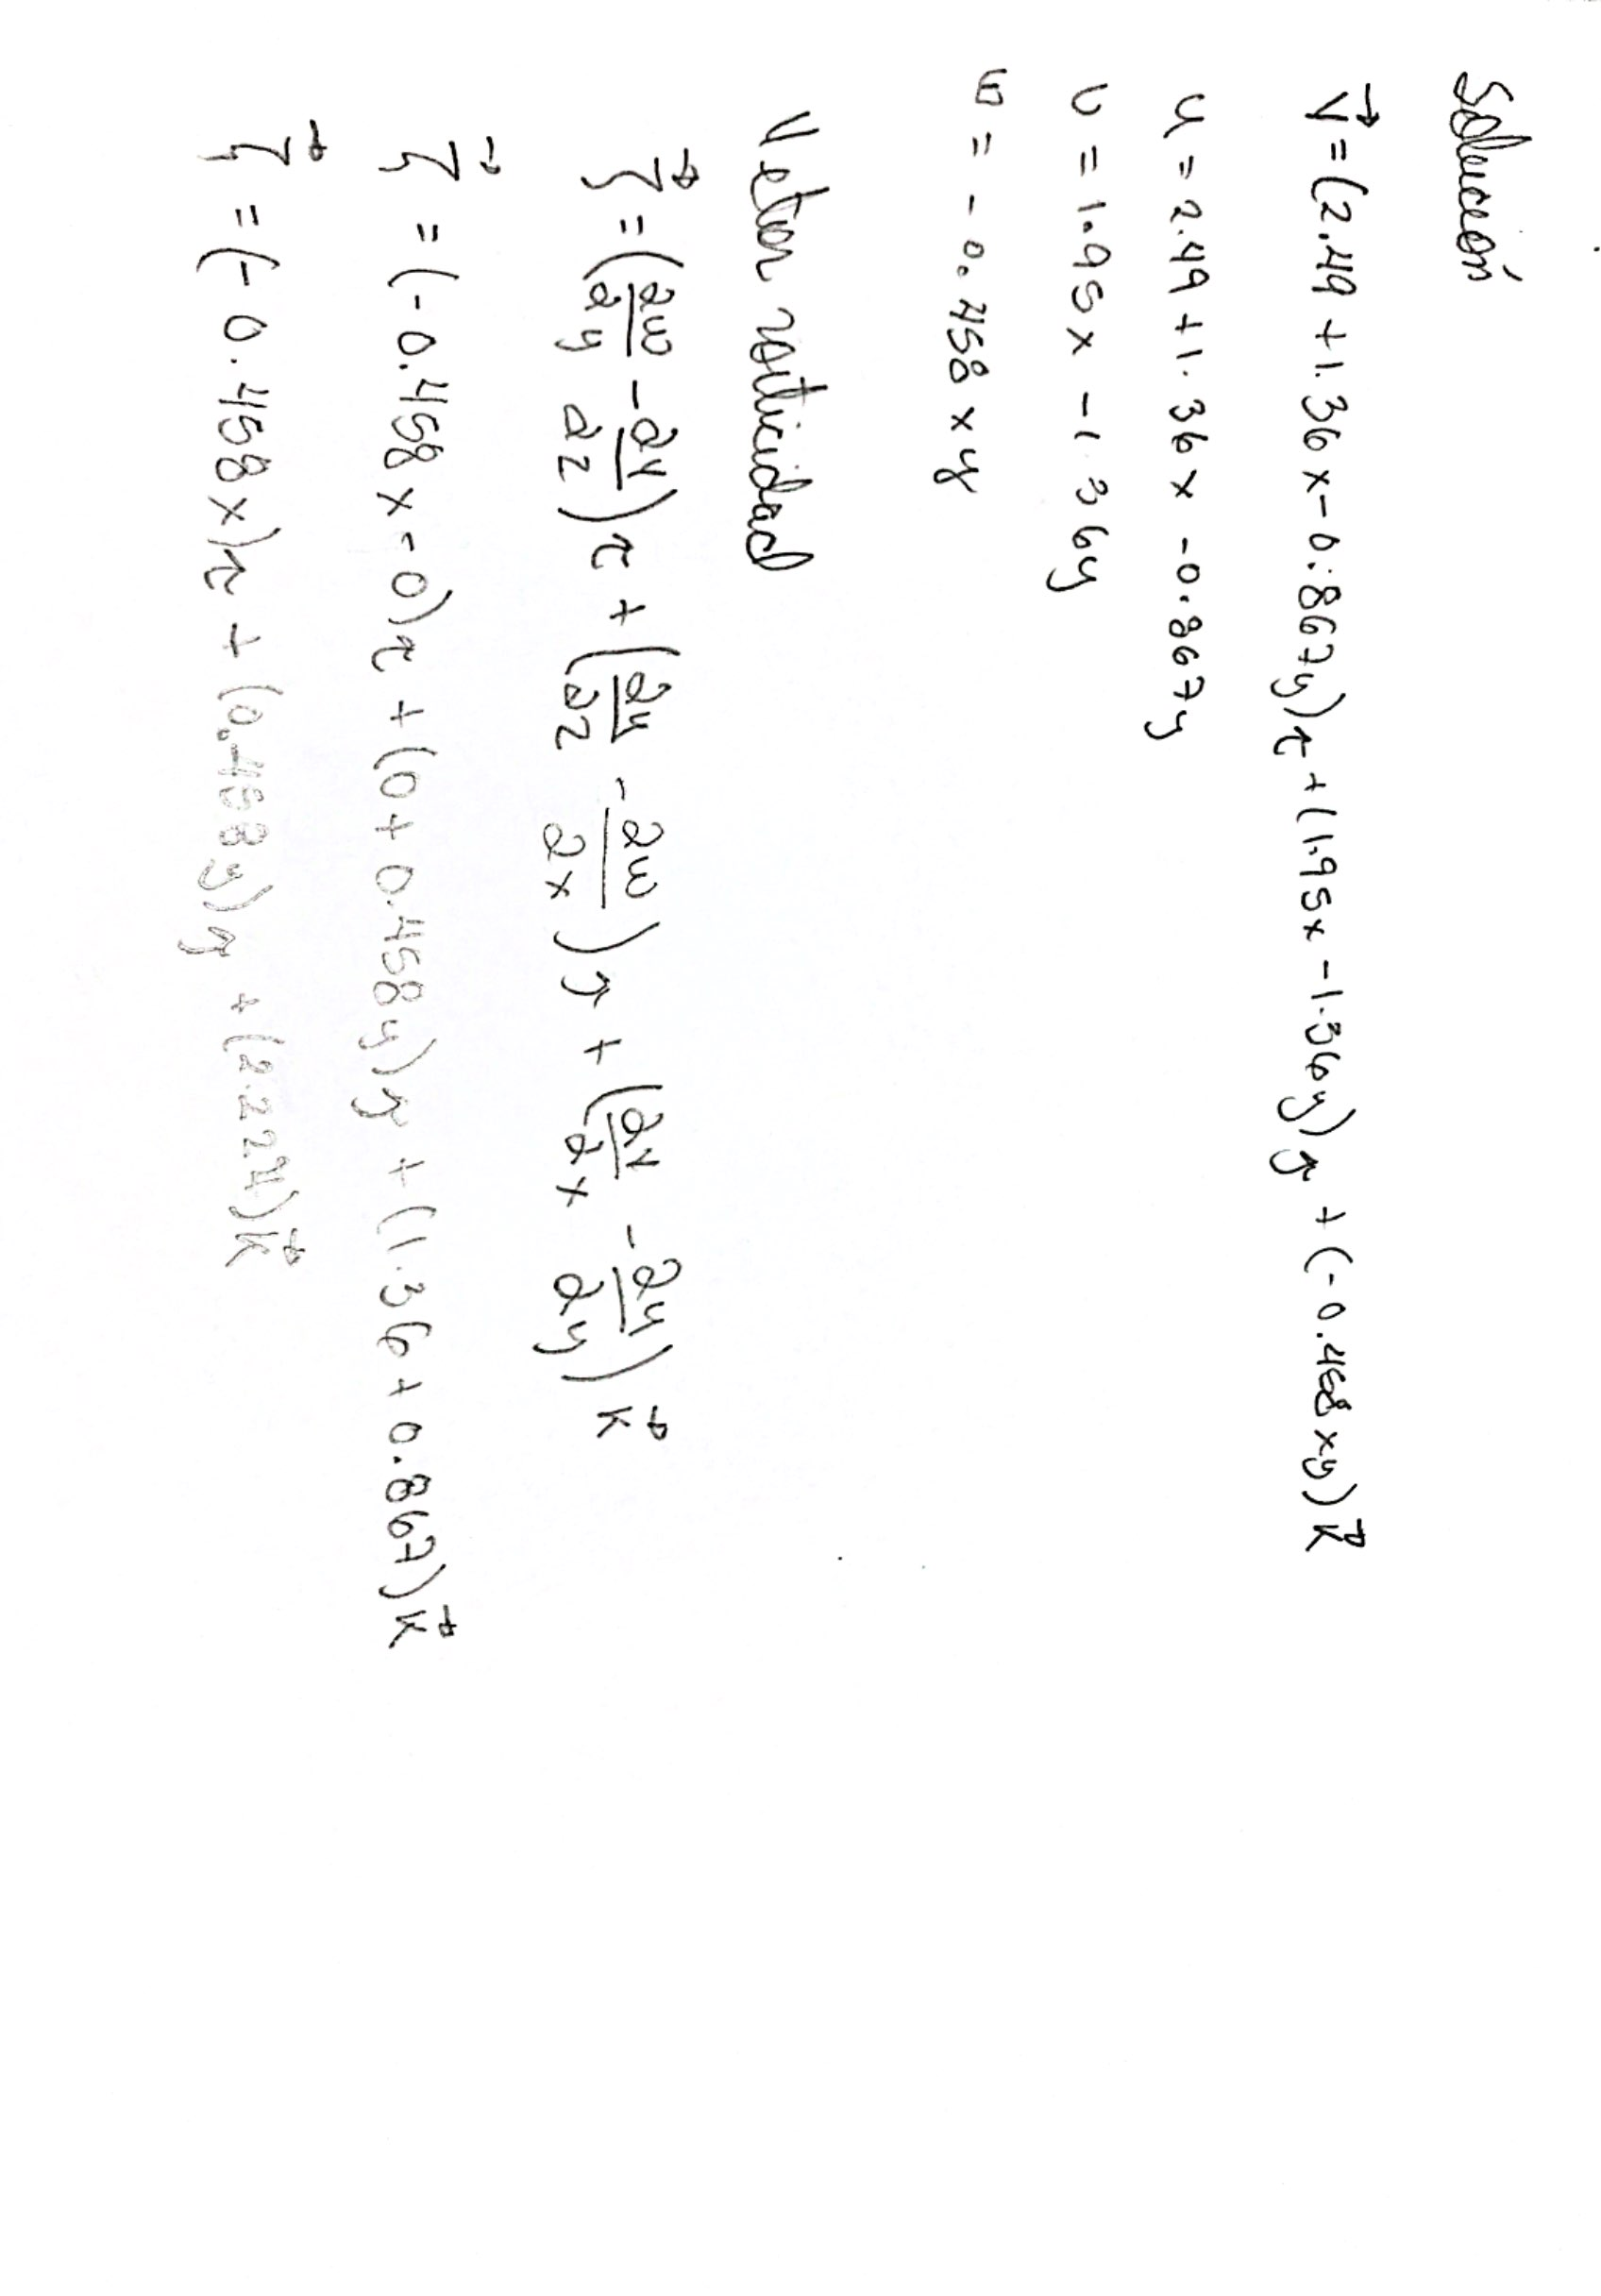 Solución
V⃗ = (2.49 + 1.36x - 0.867y)i + (1.95x - 1.36y)j + (-0.458xy)k⃗
u = 2.49 + 1.36x - 0.867y
v = 1.95x - 1.36y
w = -0.458xy
Vector vorticidad
ζ⃗ = (∂w/∂y - ∂v/∂z)i + (∂u/∂z - ∂w/∂x)j + (∂v/∂x - ∂u/∂y)k⃗
ζ⃗ = (-0.458x - 0)i + (0 + 0.458y)j + (1.36 + 0.867)k⃗
ζ⃗ = (-0.458x)i + (0.458y)j + (2.227)k⃗